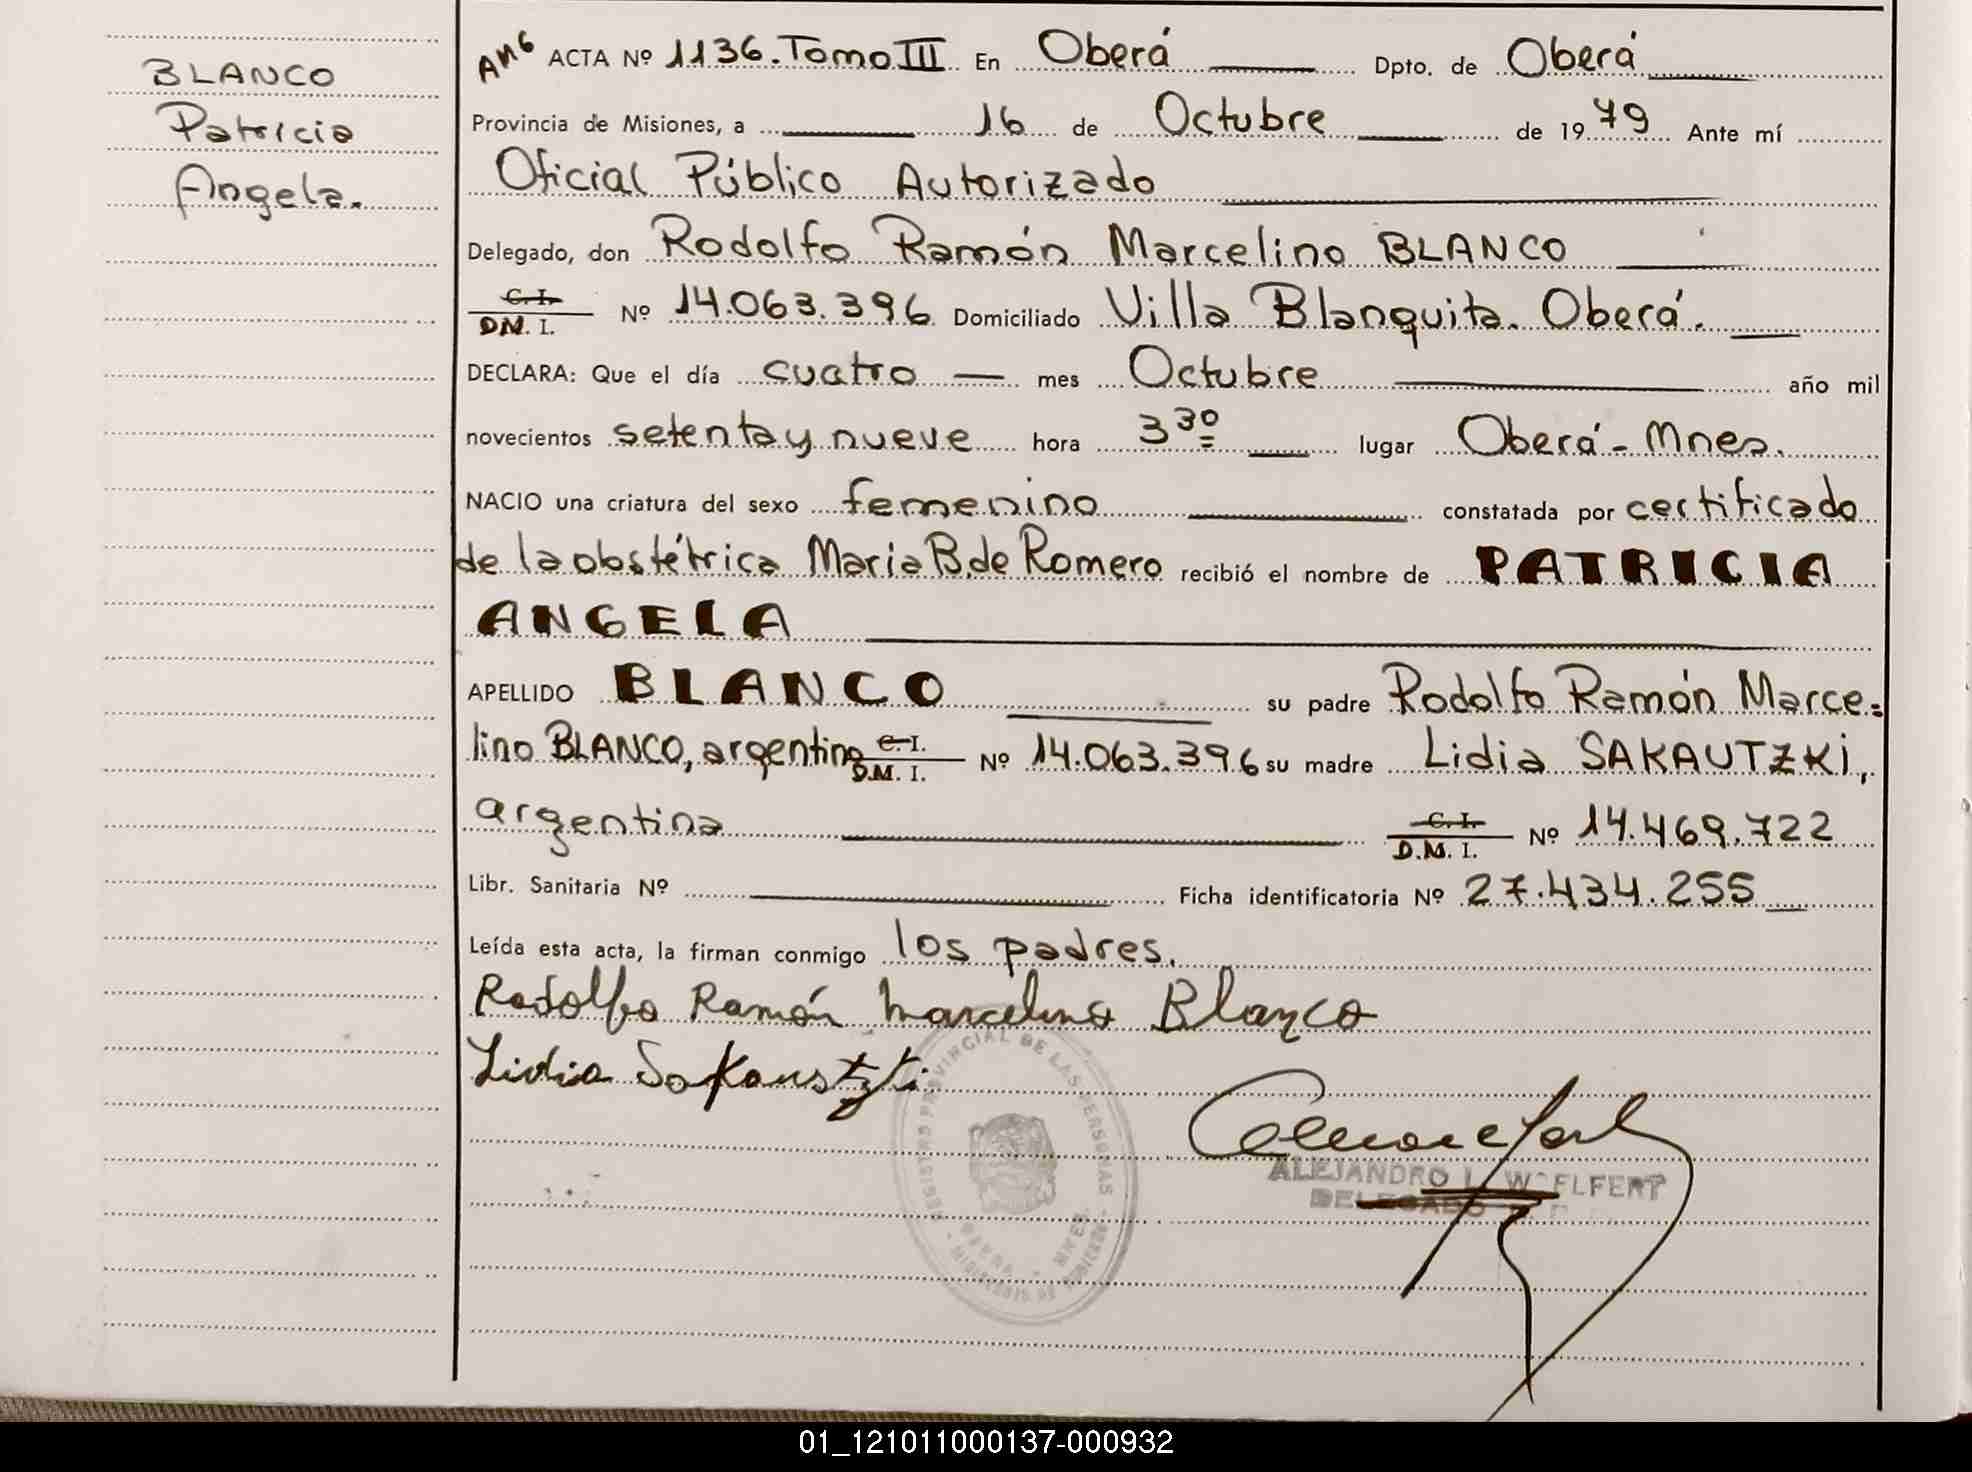 BLANCO
Patricia
Angela.
ACTA Nº 1136. Tomo III En Oberá Dpto. de Oberá
Provincia de Misiones, a 16 de Octubre de 1979 Ante mí
Oficial Público Autorizado
Delegado, don Rodolfo Ramón Marcelino BLANCO
C. I.
D.M. I. Nº 14.063.396 Domiciliado Villa Blanquita. Oberá.
DECLARA: Que el día cuatro mes Octubre año mil
novecientos setenta y nueve hora 3 30 lugar Oberá - Mnes.
NACIO una criatura del sexo femenino constatada por certificado
de la obstétrica Maria B. de Romero recibió el nombre de PATRICIA
ANGELA
APELLIDO BLANCO su padre Rodolfo Ramón Marce=
lino BLANCO, argentino C. I. D.M. I. Nº 14.063.396 su madre Lidia SAKAUTZKI,
argentina C. I. D.M. I. Nº 14.469.722
Libr. Sanitaria Nº Ficha identificatoria Nº 27.434.255
Leída esta acta, la firman conmigo los padres.
Rodolfo Ramón Marcelino Blanco
Lidia Sakaustzki
REGISTRO PROVINCIAL DE LAS PERSONAS
ALEJANDRO L. WOELFERT
DELEGADO
01_121011000137-000932